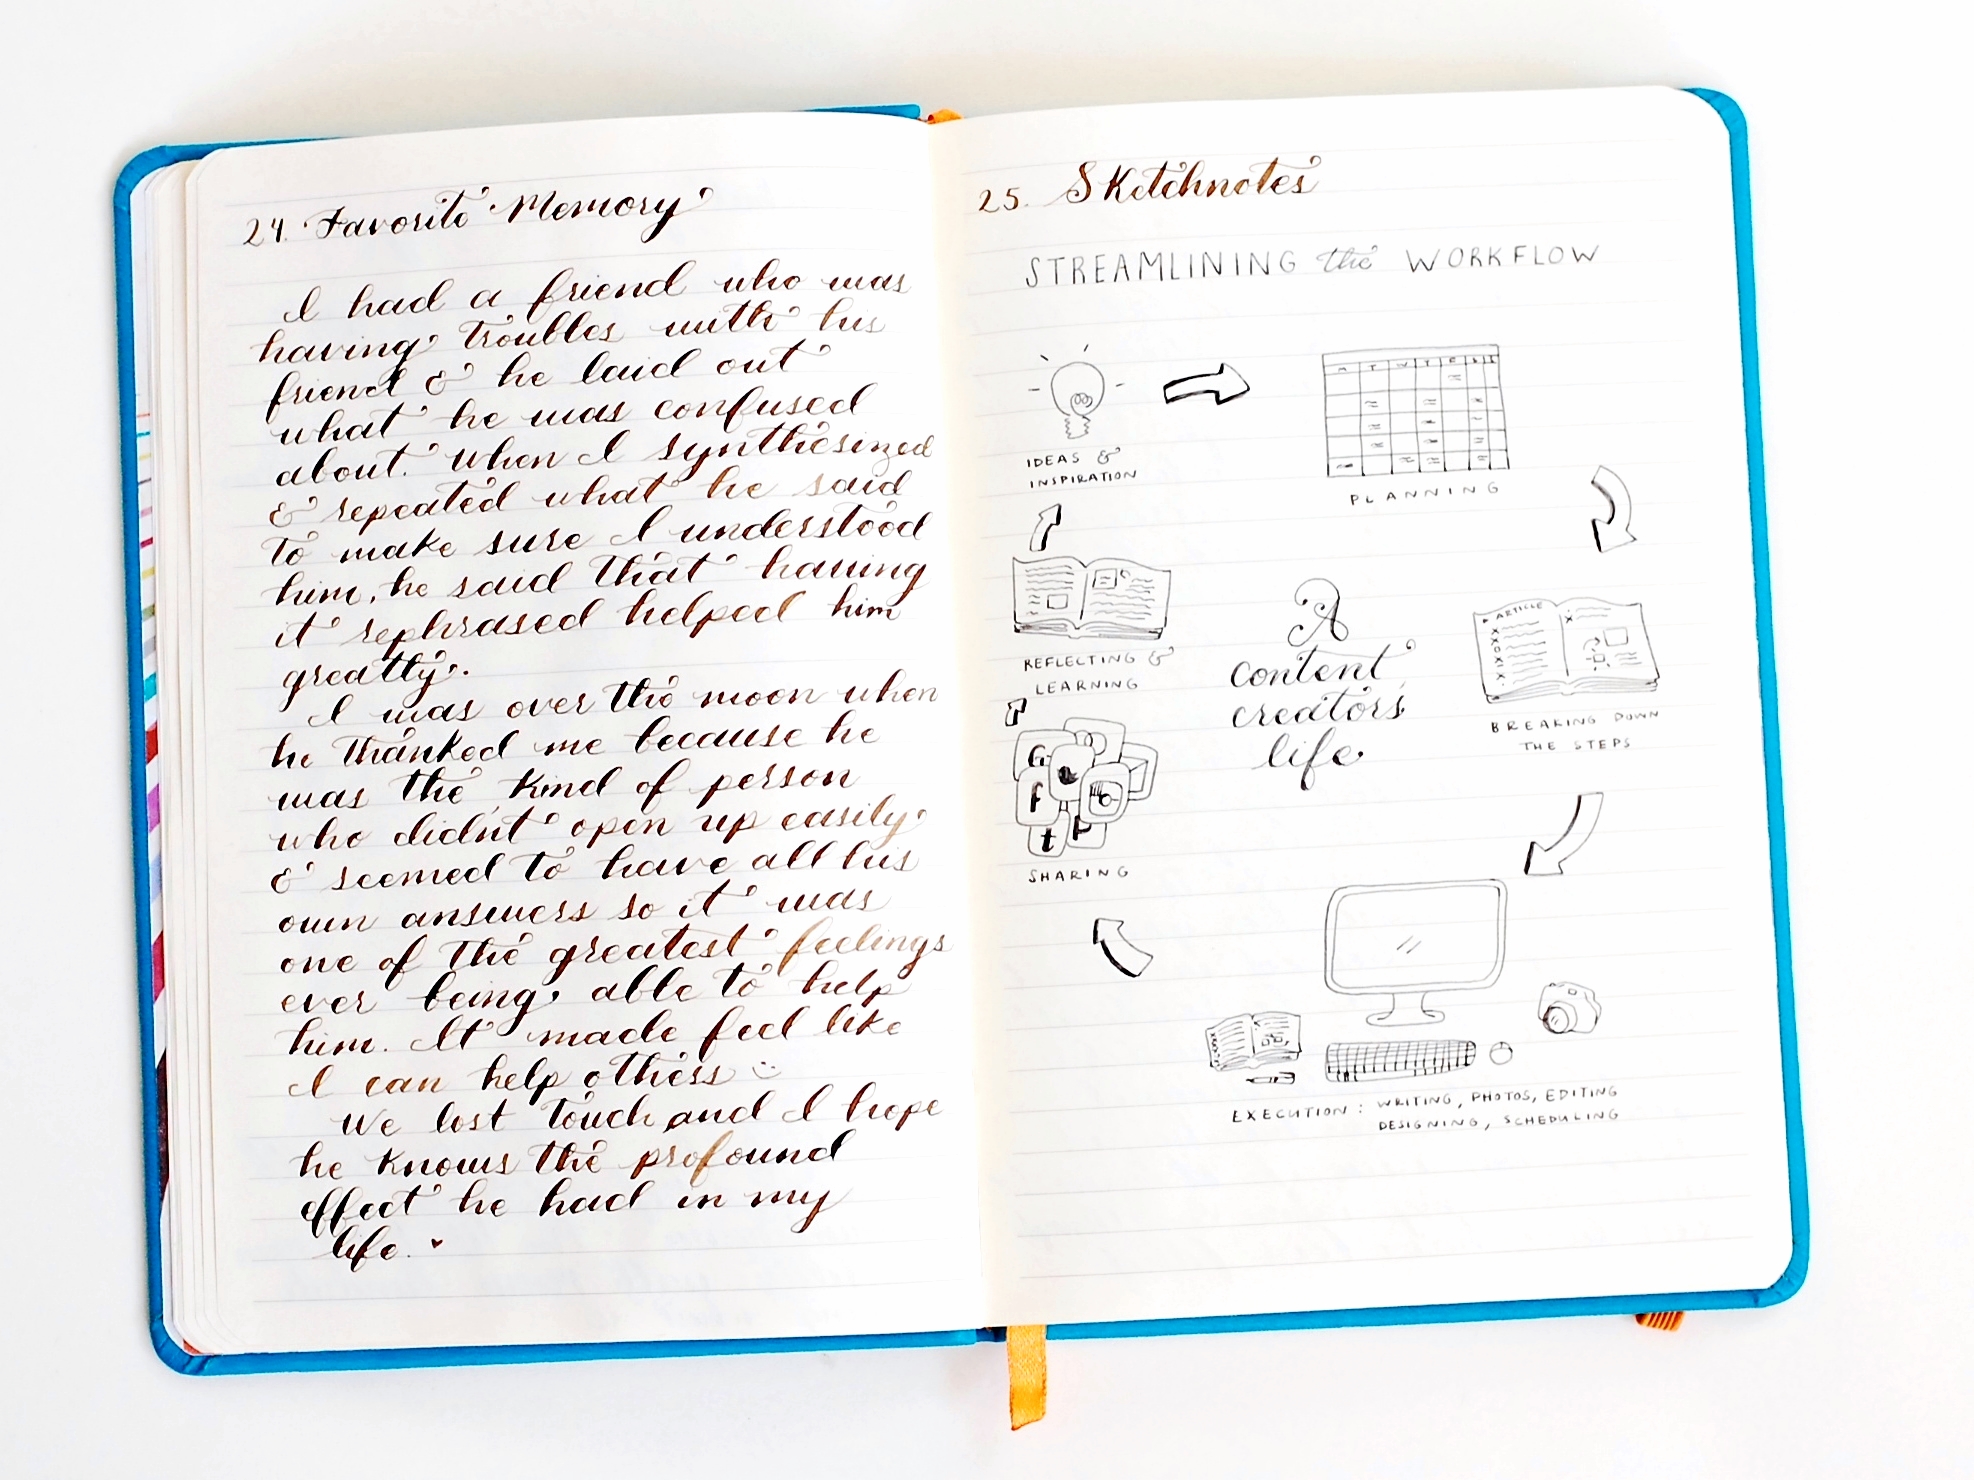 24. Favorite Memory
I had a friend who was
having troubles with his
friend & he laid out
what he was confused
about. When I synthesized
& repeated what he said
to make sure I understood
him, he said that having
it rephrased helped him
greatly.
I was over the moon when
he thanked me because he
was the kind of person
who didn't open up easily
& seemed to have all his
own answers so it was
one of the greatest feelings
ever being able to help
him. It made feel like
I can help others :)
We lost touch and I hope
he knows the profound
effect he had in my
life. ♥
25. Sketchnotes
STREAMLINING the WORKFLOW
IDEAS &
INSPIRATION
M T W T F S S
PLANNING
ARTICLE
BREAKING DOWN
THE STEPS
EXECUTION: WRITING, PHOTOS, EDITING
DESIGNING, SCHEDULING
G
f
t
SHARING
REFLECTING &
LEARNING
A
content
creators
life